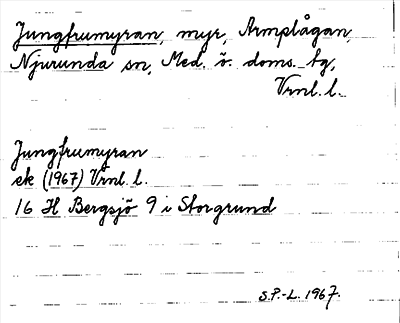 Jungfrumyran, myr, Armplågan,
Njurunda sn, Med. ö. doms. tg,
Vrnl. l.
Jungfrumyran
ek (1967) Vrnl. l.
16 H Bergsjö 9 i Storgrund
S.P.-L. 1967.